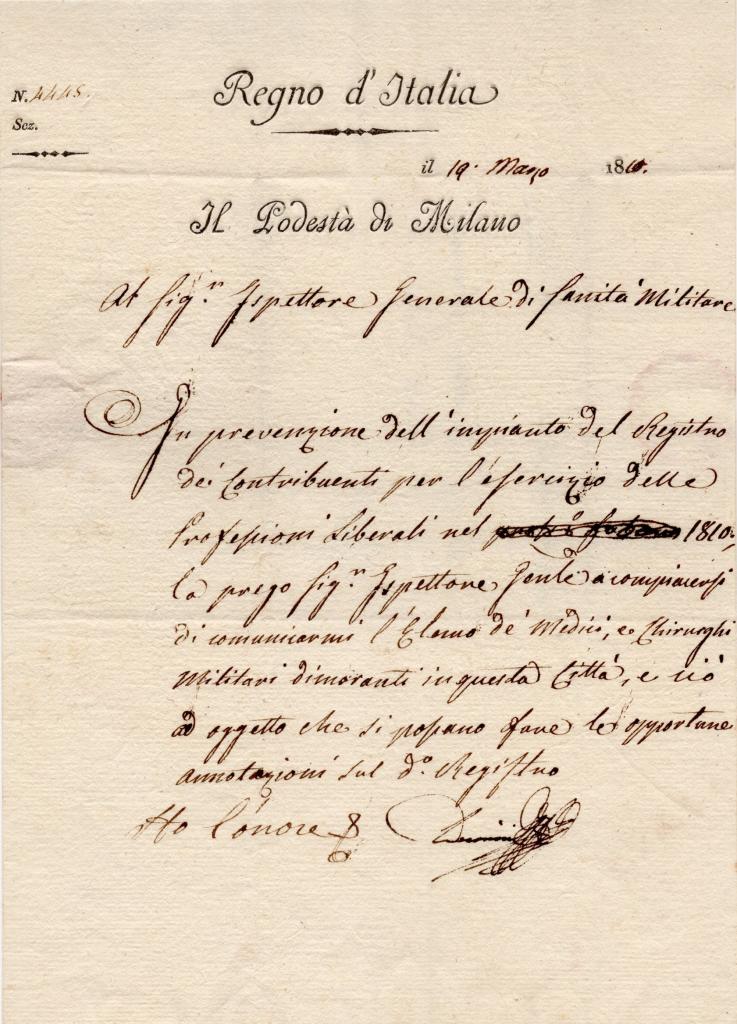 N. 4445.
Regno d'Italia
Sez.
il 19. Marzo 1810.
Il Podestà di Milano
Al Sig.r Ispettore Generale di Sanità Militare
In prevenzione dell'impianto del Registro
de' Contribuenti per l'esercizio delle
Professioni Liberali nel 1810.,
la prego Sig.r Ispettore Gen.le a compiacersi
di comunicarmi l'Elenco de' Medici, e Chirurghi
Militari dimoranti in questa Città, e ciò
ad oggetto che si possano fare le opportune
annotazioni sul d.o Registro
Ho l'onore